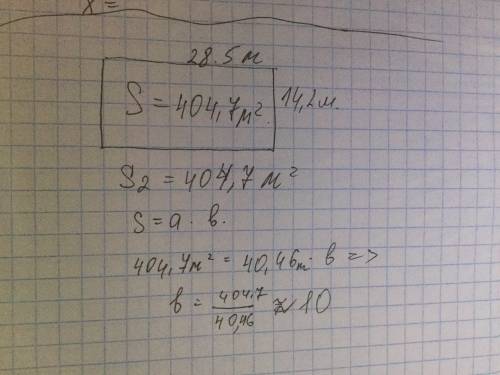 x =
28.5 м
S = 404,7 м². 14,2 м.
S₂ = 404,7 м²
S = а · в.
404,7 м² = 40,46 m · в =>
в = 404.7 / 40,46 ≈ 10